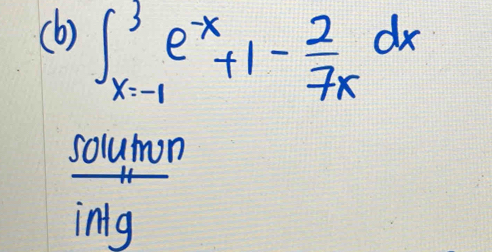 (b) ∫_{x=-1}^{3} e^{-x} + 1 - \frac{2}{7x} dx
solution
intg